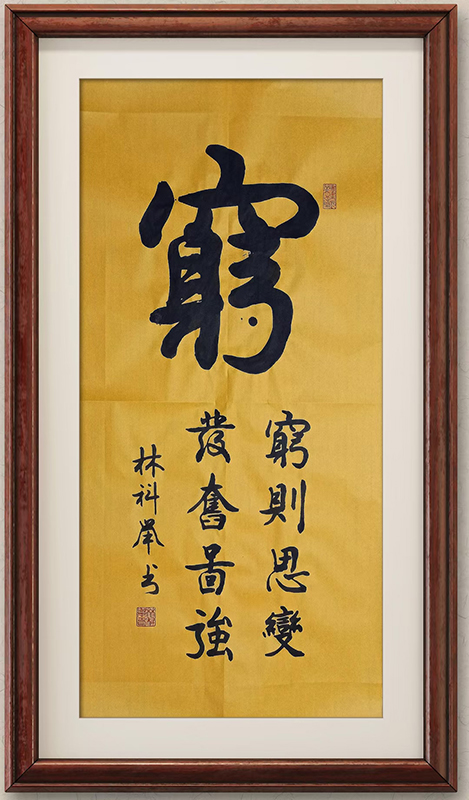 窮
窮則思變
發奮圖強
林科舉书